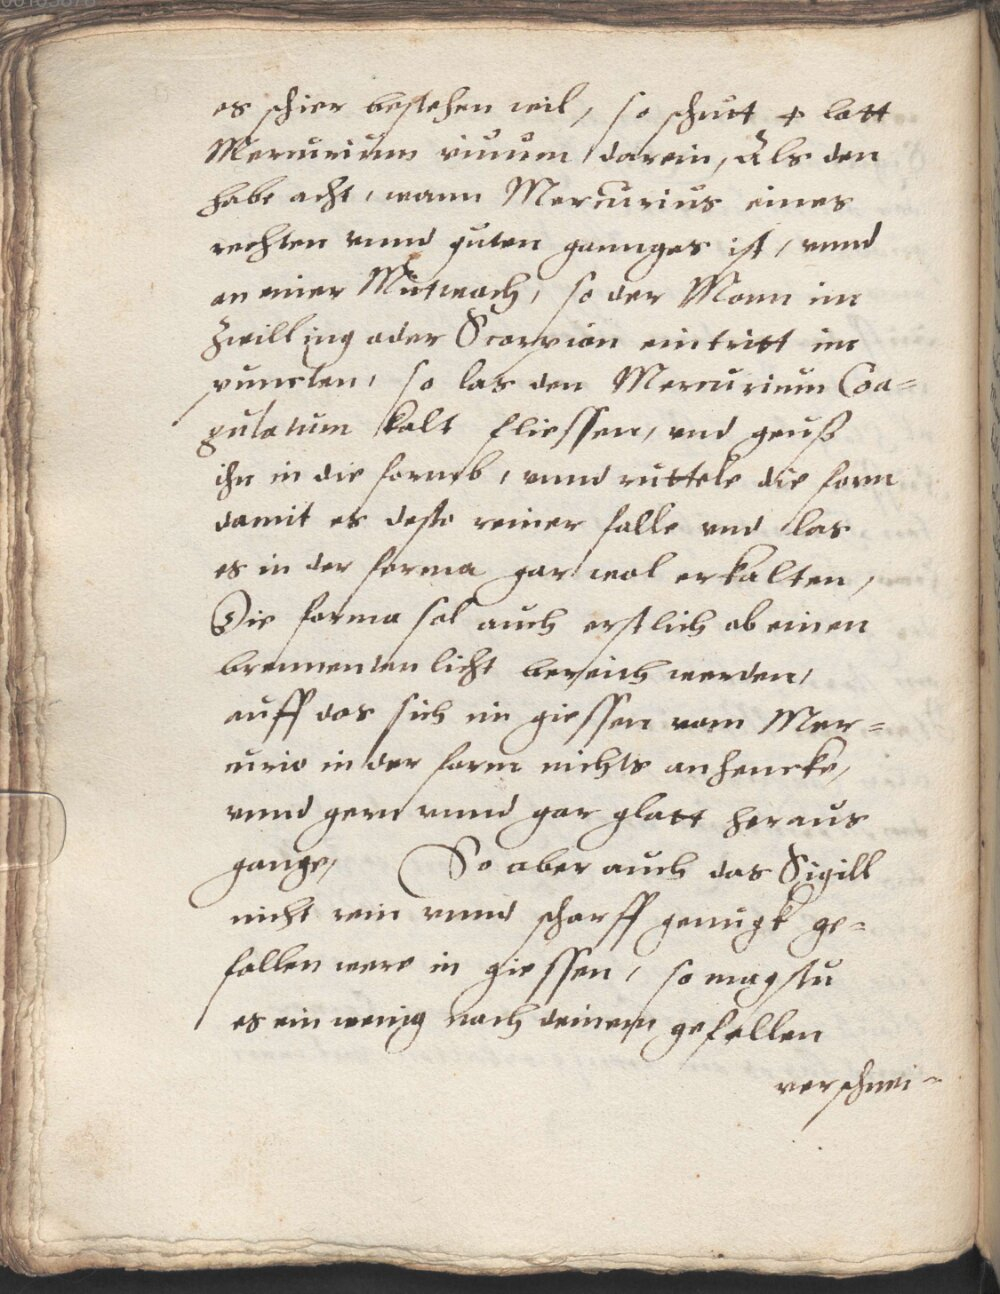 es schier bestehen wil, so schutt 4 lott
Mercurium viuum darein, Als den
habe acht, wann Mercurius eines
rechten vnnd guten gannges ist, vnnd
an einer Mitwoch, so der Monn im
Zwilling oder Scorpion eintritt im
puncten, so las den Mercurium Coa=
gulatum kalt fliessen, vnd geuß
ihn in die form, vnnd ruttele die form
damit es desto reiner falle vnd las
es in der forma gar wol erkalten,
Die forma sol auch erstlich ob einen
brennenten licht bereich werden,
auff das sich im giessen vom Mer=
curio in der form nichts anhencke,
vnnd gern vnnd gar glatt heraus
gange, So aber auch das Sigill
nicht rein vnnd scharff genugk ge=
fallen were in giessen, so magstu
es ein wenig nach deinem gefallen
verschnei=